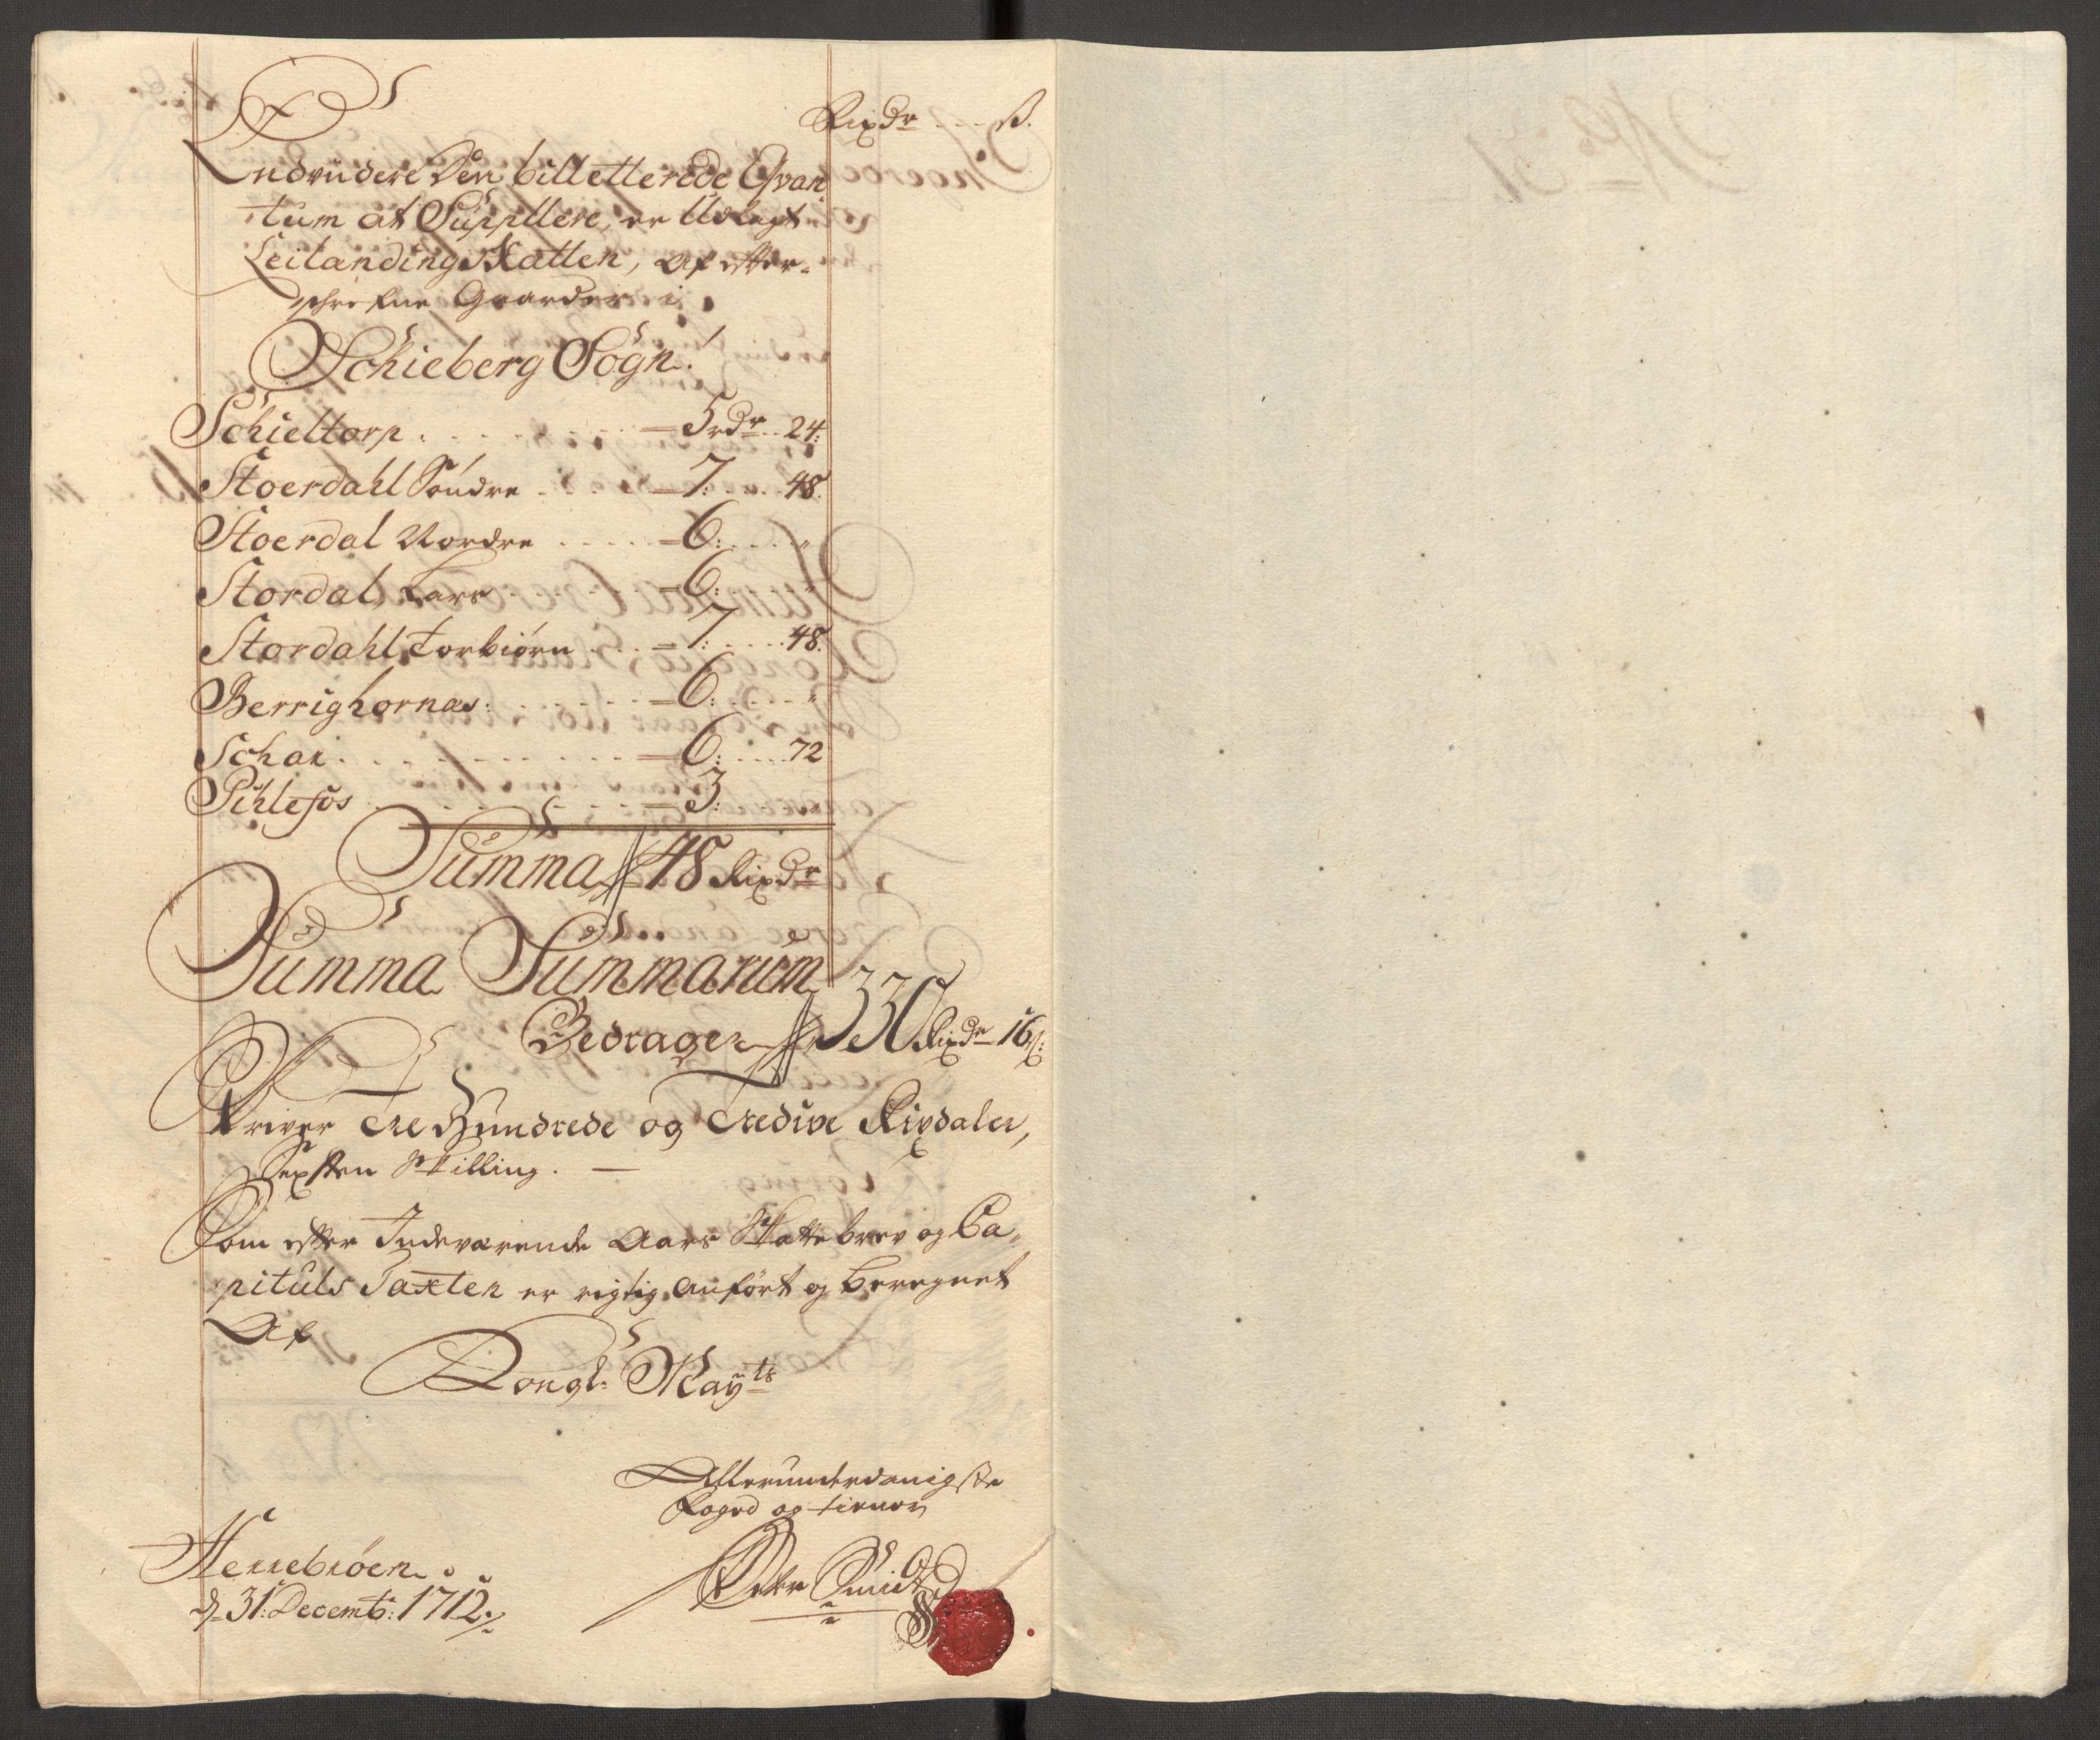 Rixdr ß.
Endvüdere Den billetterede Qvan
tum at Süpplere, er Udlagt
Leilandings Skatten, af efter-
schrefne Gaarder i
Schieberg Sogn.
Schieltorp 5 rdr 24:
Stoerdahl Söndre 7: 48.
Stoerdal Nordre 6: "
Stordal, Lars 6: "
Stordahl Torbiörn 7: 48.
Berrighornas: 6: "
Schar 6: 72
Pihlefos 3:
Summa 48 Rixdr
Summa Summarum
Bedrager 330 Rixdr 16 ß:
Skriver Tre Hundrede og Tredive Rixdaler,
Sexsten Skilling. —
Som efter Indeværende Aars Skattebrev og Ca-
pituls Taxten er rigtig anfört og beregnet
Af
Kongl: Mayts
Allerunderdanigste
Foged og tienere
Herrebröen
d. 31: Decemb: 1712.
Peder Smidt
No 31